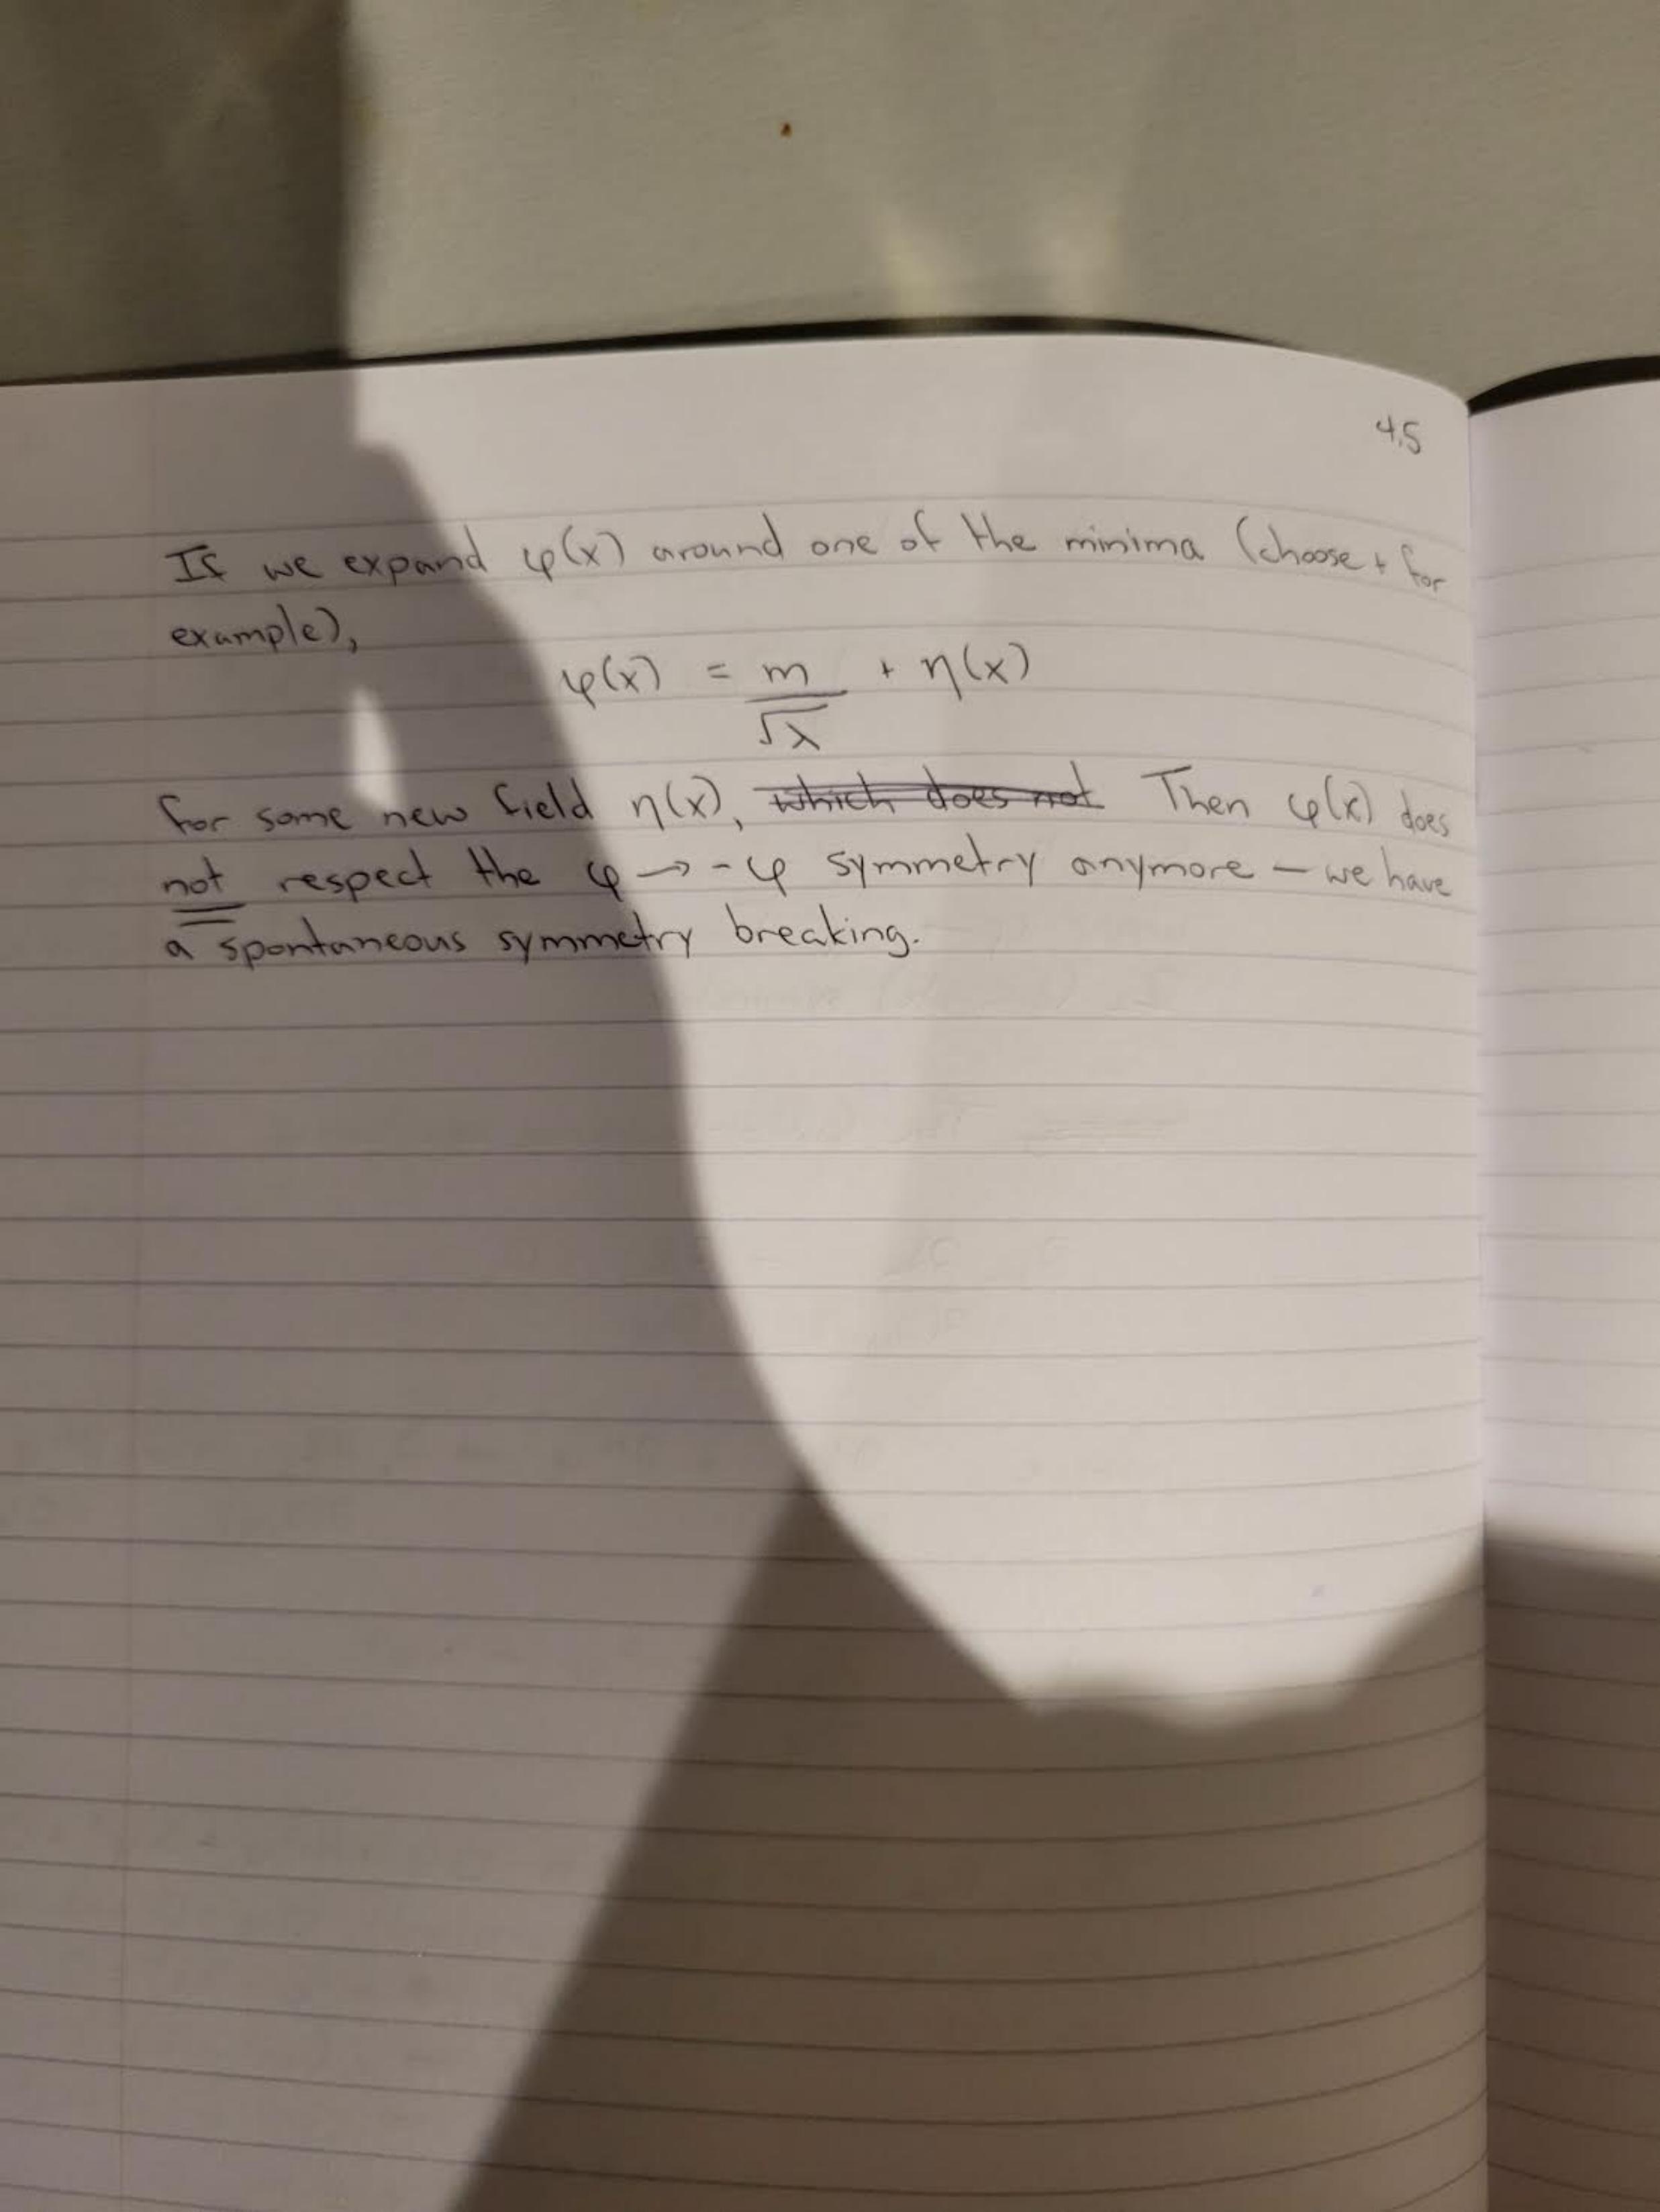 4.5
If we expand φ(x) around one of the minima (choose + for
example),
φ(x) = m/√λ + η(x)
for some new field η(x), ~~which does not~~ Then φ(x) does
not respect the φ → -φ symmetry anymore — we have
a spontaneous symmetry breaking.